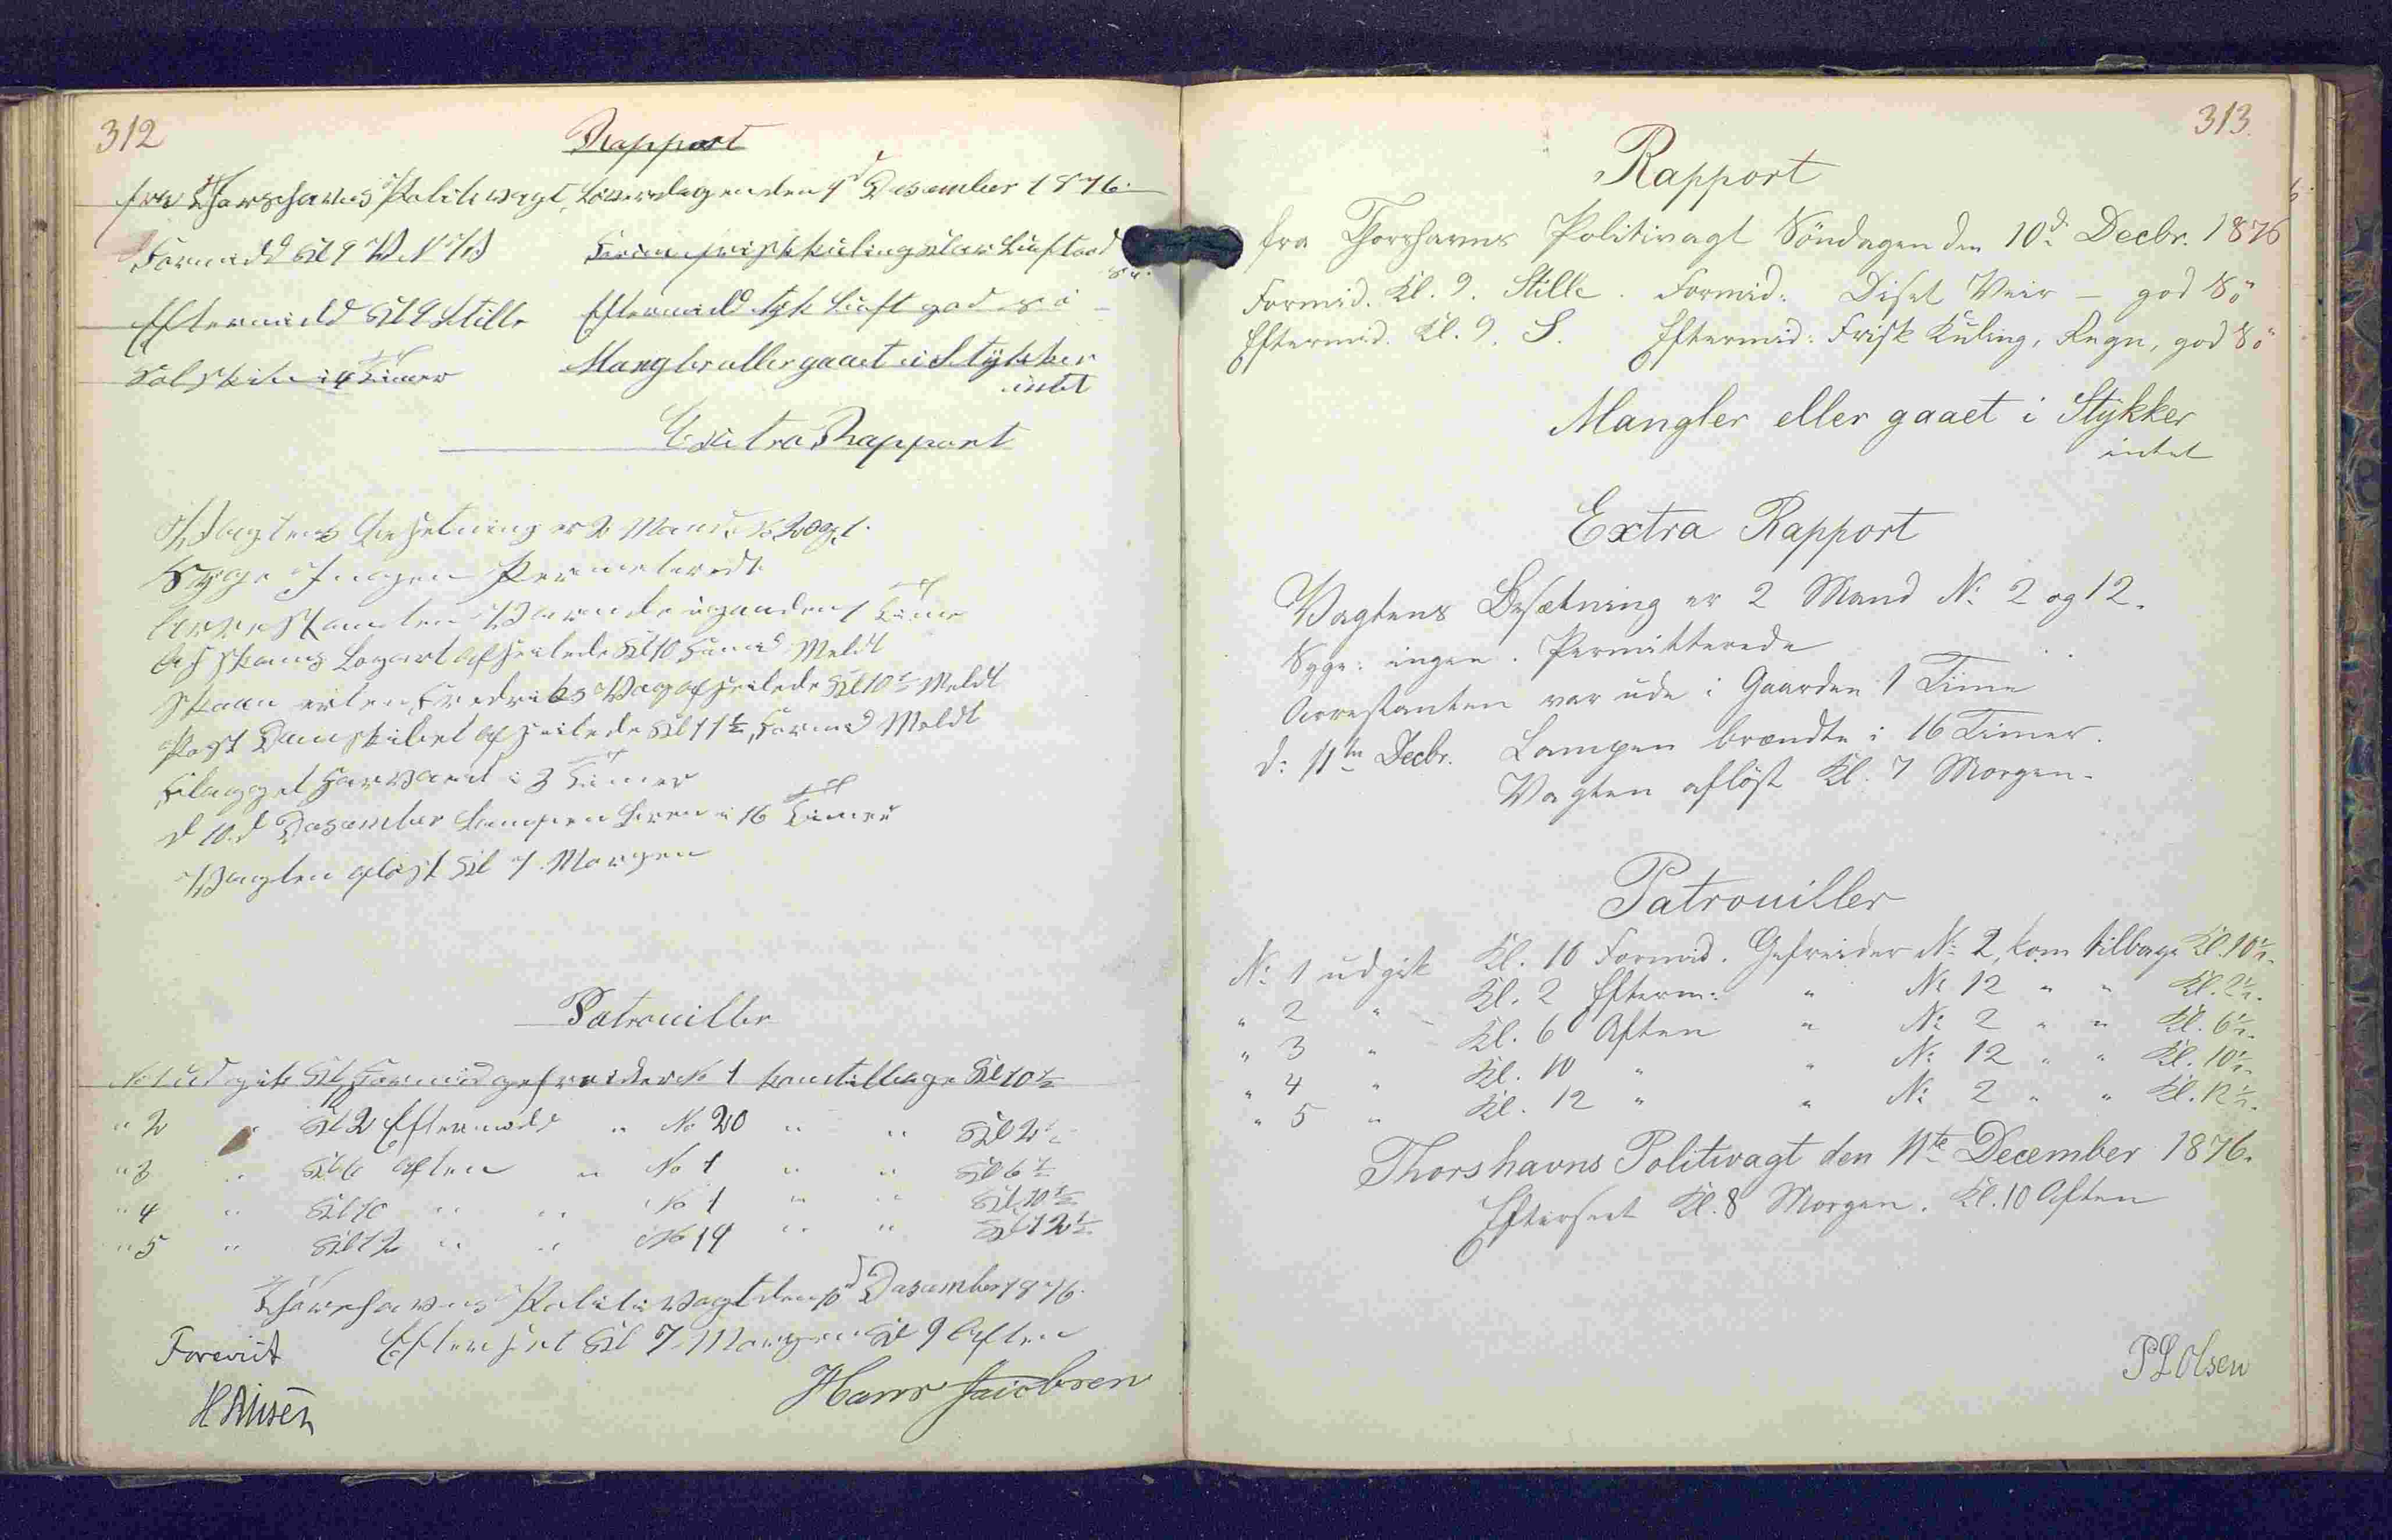 312
Rapport
fra Thorshavns Politivagt, Löverdagen den 9d Desember 1876.
Formidd Kl 9 V. N. V.
Formi frisk kuling klar Luft god
sö.
Eftermidd Kl 9 Stille
Eftermidd tyk Luft god sö
Solskin i 4 Timer
Mangler eller gaaet i Stykker
intet
Extra Rapport
Vagtens Besetning er 2 Mand No 20 og 1.
Syge Ingen Permeteredt
Arrestanten Var ude i gaarden 1 Time
Logart afseilede Kl 10 Formd Meldt
Fredriks Vaag afseilede Kl 10 1/2 Meldt
Post Damskibet afseilede Kl 11 1/2 Formd Meldt
Flagget har vaert i 3 Timer
d 10.d Desember Lampen bren i 16 Timer
Vagten aflöst Kl 7. Morgen
Patrouiller
No 1 udgik Kl Formid gefreider No 1 kom tilbage Kl 10 1/2
" 2 " Kl 2 Eftermidd " No 20 " " Kl 2 1/2
" 3 " Kl 6 Aften " No 1 " " Kl 6 1/2
" 4 " Kl 10 " " No 1 " " Kl 10 1/2
" 5 " Kl 12 " " No 19 " " Kl 12 1/2
Thorshavns Politi Vagt den 10d Desember 1876.
Foreviist
Efterseet Kl 7 Morgen Kl 9 Aften
Hans Jaicobsen
313.
Rapport
fra Thorshavns Politivagt Söndagen den 10d Decbr. 1876
Formid. Kl. 9. Stille. Formid: Diset Veir – god Sö
Eftermid. Kl. 9. S. Eftermid: Frisk Kuling, Regn, god Sö
Mangler eller gaaet i Stykker
intet
Extra Rapport
Vagtens Besætning er 2 Mand No 2 og 12.
Syge: ingen. Permitterede
Arrestanten var ude i Gaarden 1 Time
d: 11te Decbr. Lampen brændte i 16 Timer.
Vagten aflöst Kl. 7 Morgen.
Patrouiller
No 1 udgik Kl. 10 Formid. Gefreider No 2, kom tilbage Kl. 10 1/2.
" 2 " Kl. 2 Efterm: " No 12 " " Kl. 2 1/2.
" 3 " Kl. 6 Aften " No 2 " " Kl. 6 1/2.
" 4 " Kl. 10 " " No 12 " " Kl. 10 1/2.
" 5 " Kl. 12 " " No 2 " " Kl. 12 1/2.
Thorshavns Politivagt den 11te December 1876.
Efterseet Kl. 8 Morgen. Kl. 10 Aften
P L Olsen